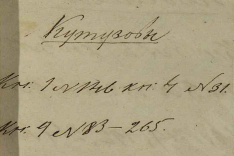 Кутузовы
Кн. 1 № 146 кн. 4 № 31.
Кн. 9 № 83 – 265.